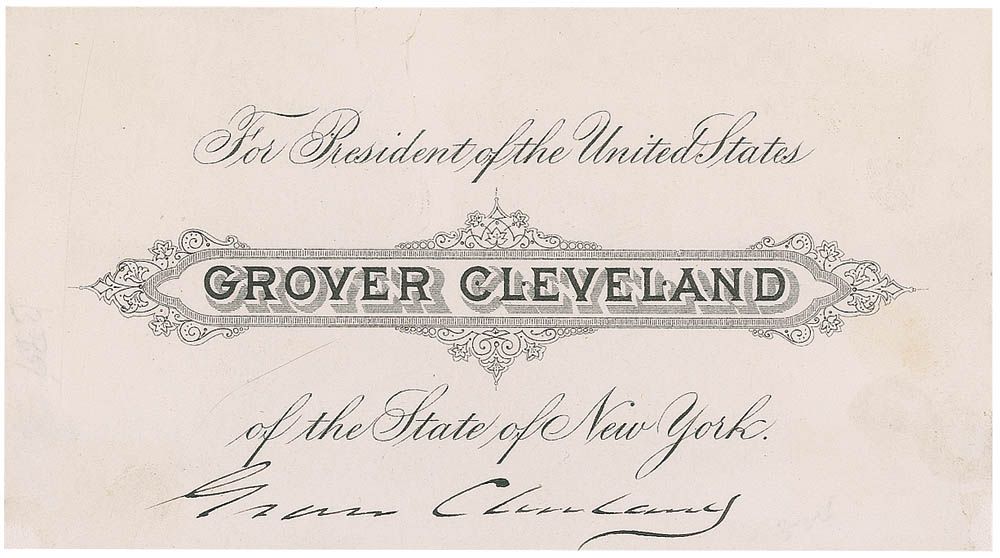 For President of the United States
GROVER CLEVELAND
of the State of New York.
Grover Cleveland